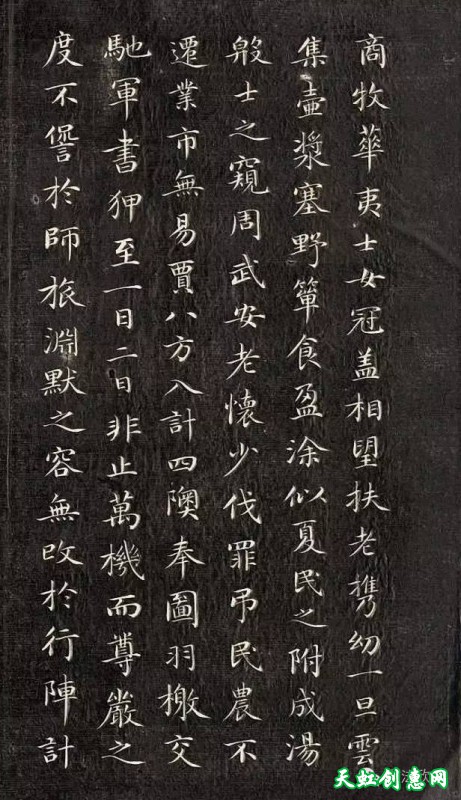 商牧華夷士女冠盖相望扶老携幼一旦雲
集壺漿塞野簞食盈塗似夏民之附成湯
殷士之窺周武安老懷少伐罪弔民農不
遷業市無易賈八方入計四隩奉圖羽檄交
馳軍書狎至一日二日非止萬機而尊嚴之
度不諐於師旅淵默之容無改於行陣計
天虹创意网